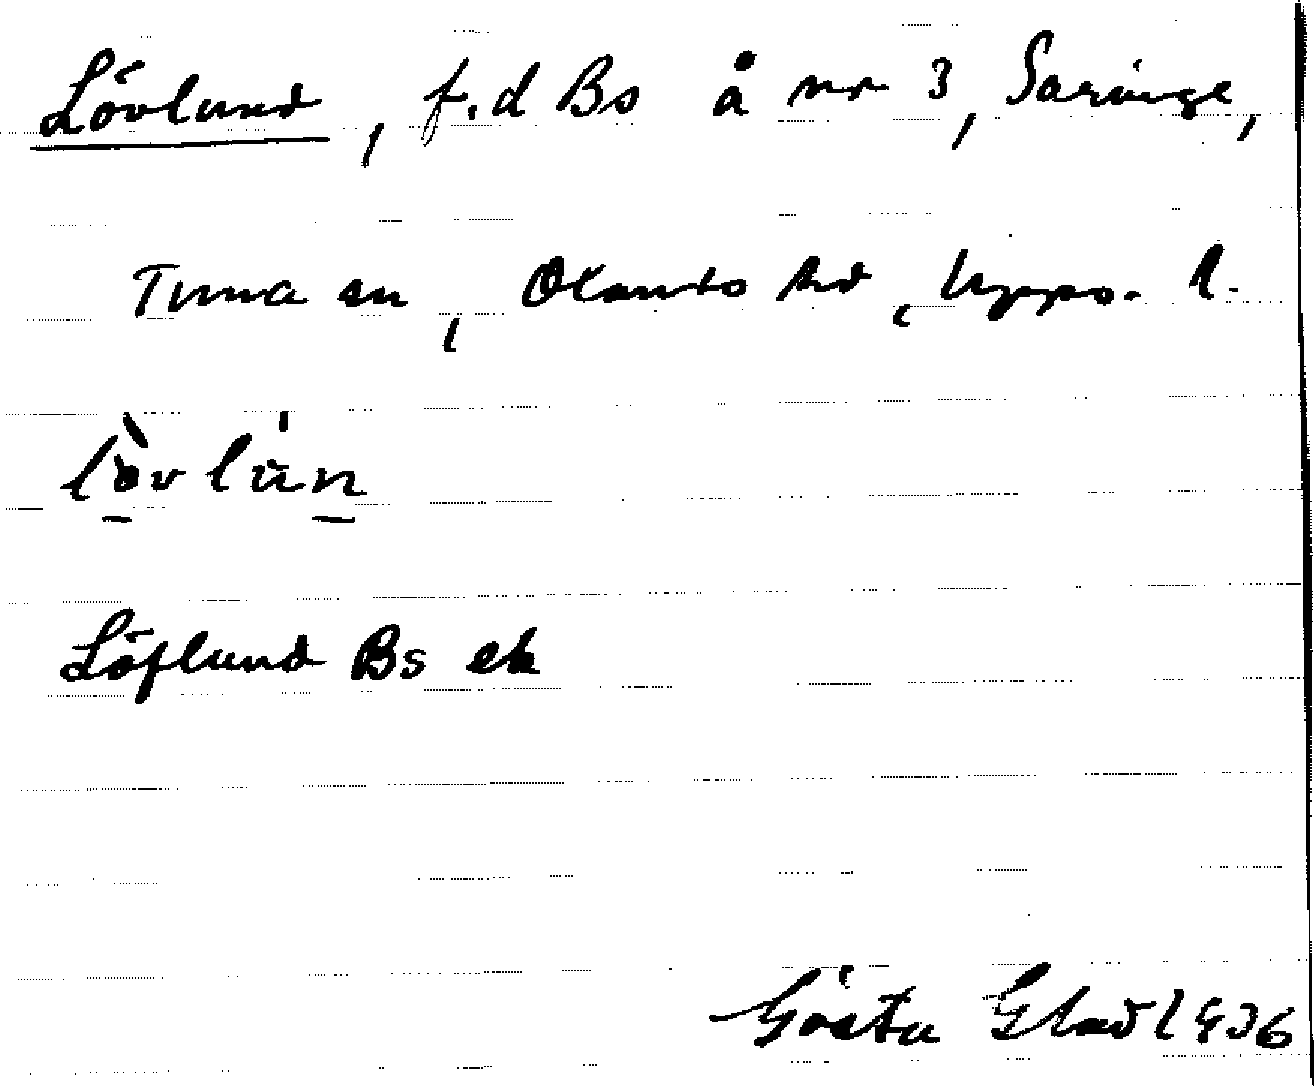 Lövlund, f.d Bs å nr 3, Saringe,
Tuna sn, Olands hd, Upps. l.
lòvlún
Löflund Bs ek
Gösta Glad 1936